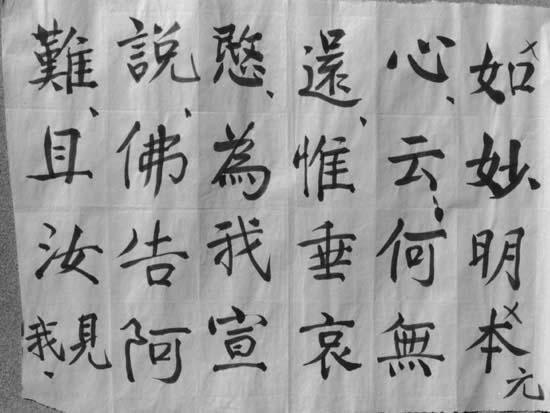 如妙明本元
心、云何無
還、惟垂哀
愍、為我宣
說、佛告阿
難、且汝見我、